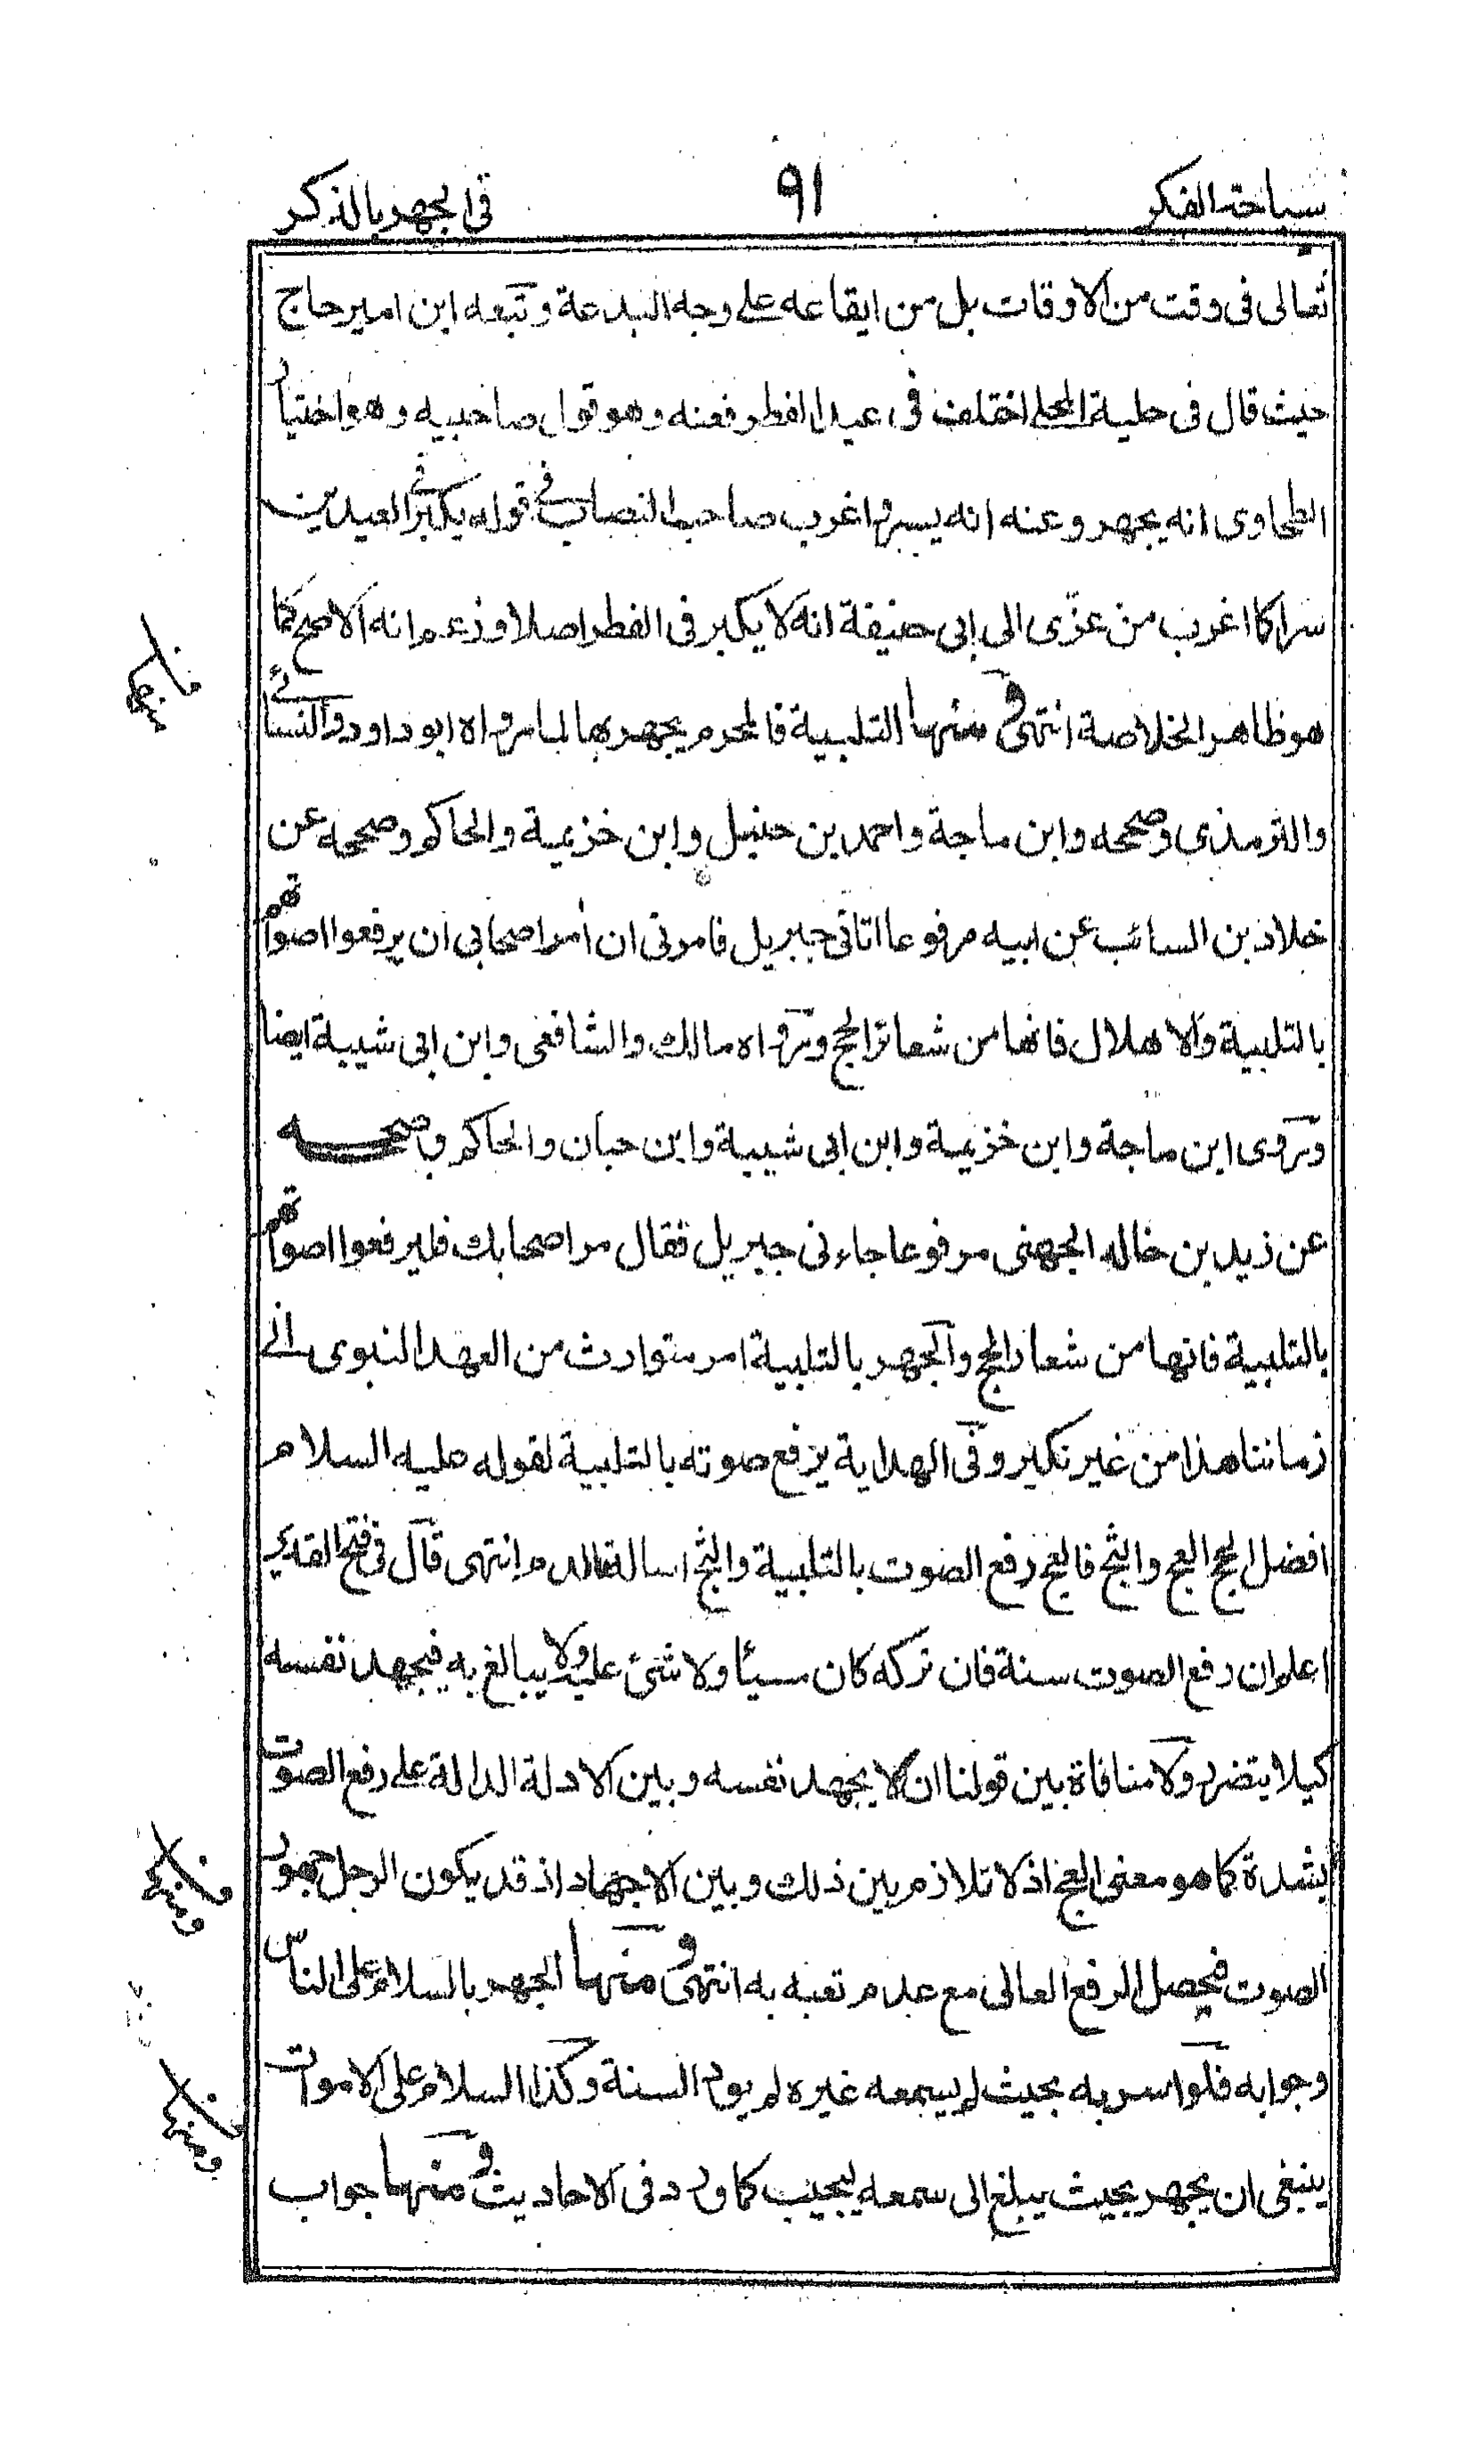 سباحة الفكر ٩١ فى الجهر بالذكر
تعالى فى وقت من الاوقات بل من ايقاعه على وجه البدعة وتبعه ابن امير حاج
حيث قال فى حلية المحلے اختلف فى عيد الفطر فعنه وهو قول صاحبيه وهو اختيار
الطحاوى انه يجهر وعنه انه يسر واغرب صاحب النصاب فے قوله يكبر فے العيدين
سرا كما اغرب من عزى الى ابى حنيفة انه لا يكبر فى الفطر اصلا وزعم انه الاصح كما
هو ظاهر الخلاصة انتهى ومنها التلبية فالمحرم يجهر بها لما رواه ابو داود والنسائے
والترمذى وصححه وابن ماجة واحمد بن حنبل وابن خزيمة والحاكم وصححه عن
خلاد بن السائب عن ابيه مرفوعا اتانى جبريل فامرنى ان أمر اصحابى ان يرفعوا اصواتهم
بالتلبية والاهلال فانها من شعائر الحج ورواه مالك والشافعى وابن ابى شيبة ايضا
وروى ابن ماجة وابن خزيمة وابن ابى شيبة وابن حبان والحاكم وصححه
عن زيد بن خالد الجهنى مرفوعا جاءنى جبريل فقال مر اصحابك فليرفعوا اصواتهم
بالتلبية فانها من شعار الحج والجهر بالتلبية امر متوارث من العهد النبوى الے
زماننا هذا من غير نكير وفى الهداية يرفع صوته بالتلبية لقوله عليه السلام
افضل الحج العج والثج فالعج رفع الصوت بالتلبية والثج اسالة الدم انتهى قال فى فتح القدير
اعلم ان رفع الصوت سنة فان تركه كان مسيئا ولا شئ عليه ولا يبالغ به فيجهد نفسه
كيلا يتضرر ولا منافاة بين قولنا ان لا يجهد نفسه وبين الادلة الدالة على رفع الصوت
بشدة كما هو معنى العج اذ لا تلازم بين ذلك وبين الاجهاد اذ قد يكون الرجل جهور
الصوت فيحصل الرفع العالى مع عدم تعبه به انتهى ومنها الجهر بالسلام على الناس
وجوابه فلو اسر به بحيث لم يسمعه غيره لم يود السنة وكذا السلام على الاموات
ينبغى ان يجهر بحيث يبلغ الى سمعه ليجيب كما ورد فى الاحاديث ومنها جواب